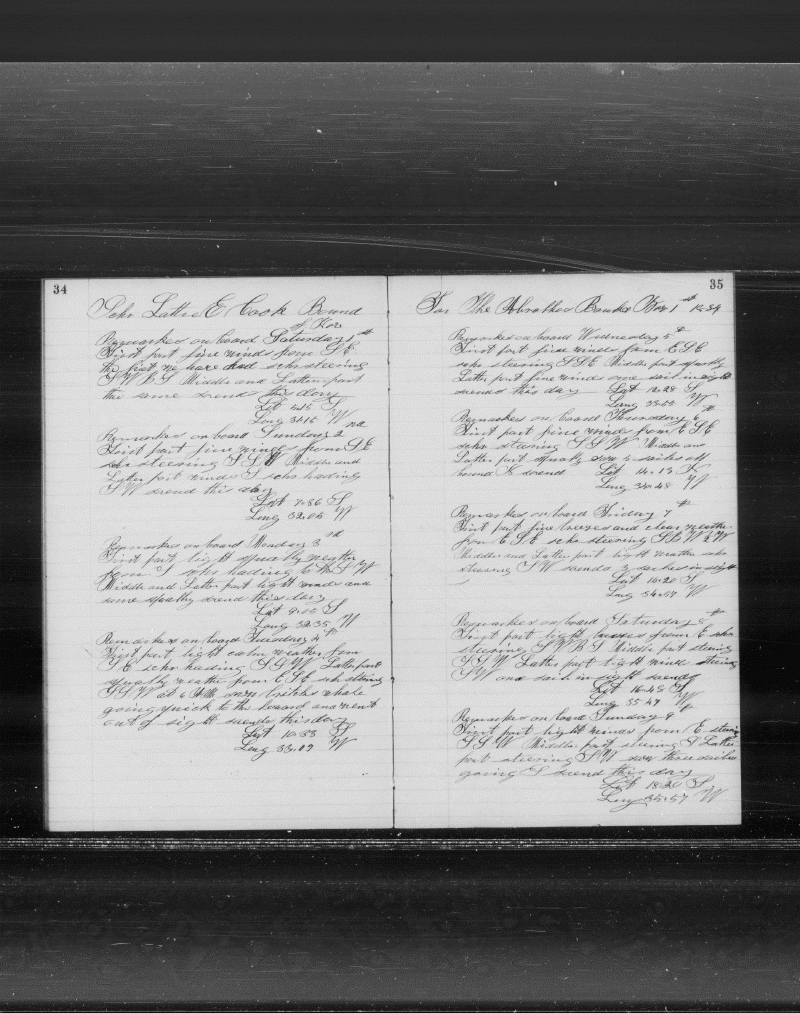 34
Schr Lottie E Cook Bound
of Nov
Remarkes on board Saturday 1st
First part fine winds from S E
the first we have had schr steering
S W B S Middle and Latter part
the same soends this day
Lat 4.45 S
Long 31.16 W
Remarkes on board Sunday 2nd
First part fine winds from S E
schr steering S S W Middle and
Latter part winds S schr heading
S W soend this day
Lat 7.86 S
Long 32.06 W
Remarkes on board Monday 3rd
First part light squally weather
from S schr heading W S W
Middle and Latter part light winds and
some squally soend this day
Lat 9.00 S
Long 32.35 W
Remarkes on board Tuesday 4th
First part light calm weather from
S E schr heading S S W Latter part
squally weather from E S E schr steering
S S W at 6 AM
going quick to the leward and went
out of sight soends this day
Lat 10.33 S
Long 33.09 W
35
For The Abrolhos Banks Nov 1st 1884
Remarkes on board Wednesday 5th
First part fine winds from E S E
schr steering S S E Middle part squally
Latter part fine winds one sail in sight
soends this day Lat 12.28 S
Long 33.55 W
Remarkes on board Thursday 6th
First part fine wind from E S E
schr steering S S W Middle and
Latter part squally saw 5 sailes all
bound N soend Lat 14.13 S
Long 34.48 W
Remarkes on board Friday 7th
First part fine breezes and clear weather
from E S E schr steering S B W ½ W
Middle and Latter part light weather schr
steering S W soends 3 sailes in sight
Lat 16.20 S
Long 34.57 W
Remarkes on board Saturday 8th
First part light breezes from E schr
steering S W B S Middle part steering
S S W Latter part light winds steering
S W one sail in sight soends
Lat 16.48 S
Long 35.47 W
Remarkes on board Sunday 9th
First part light winds from E steering
S S W Middle part steering S Latter
part steering S W saw three sailes
going S soend this day
Lat 18.20 S
Long 35.57 W